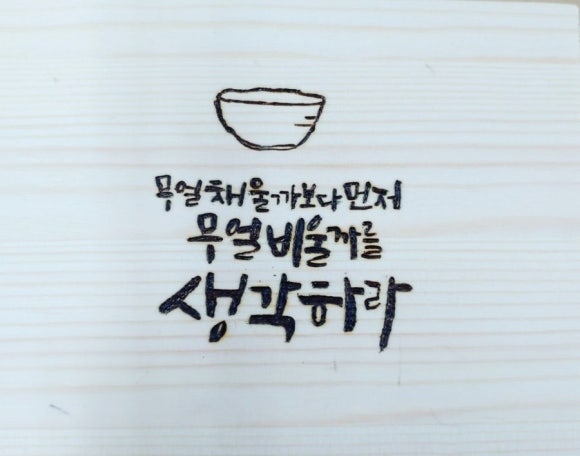 무얼 채울까보다 먼저
무얼 비울까를
생각하라